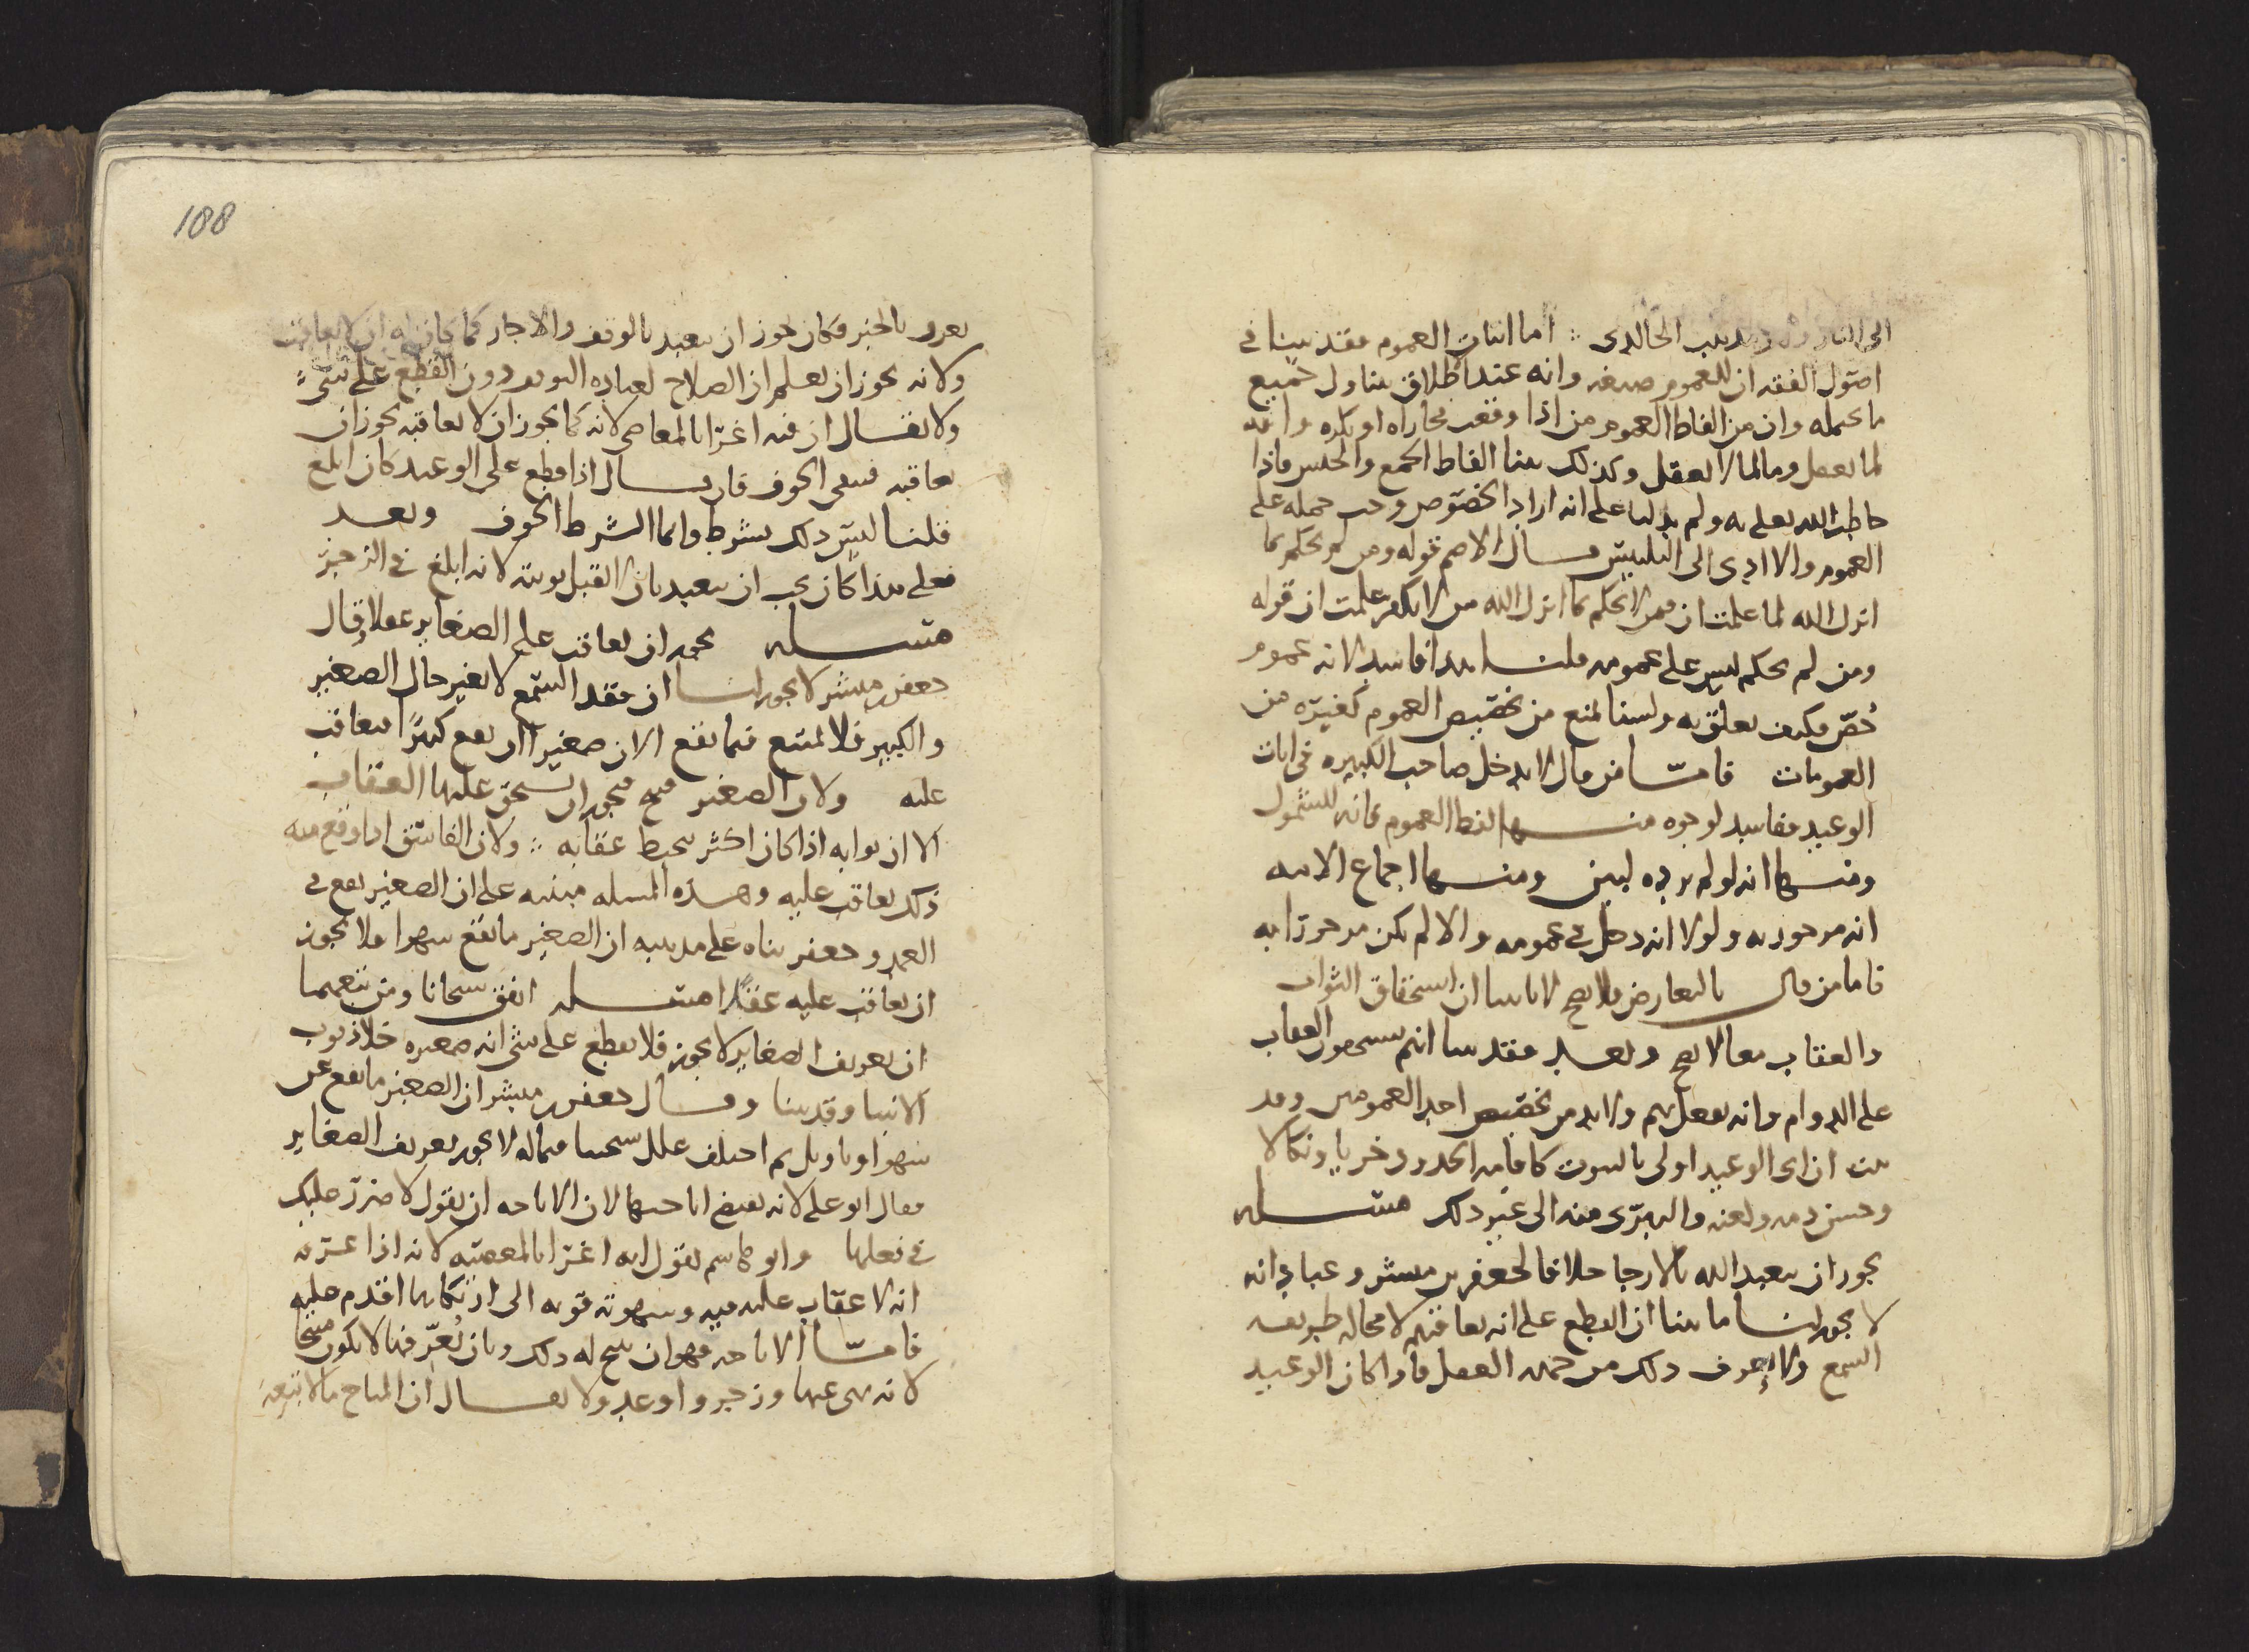 الى النار وهو مذهب الخالدي ؞ اما اثبات العموم فقد بينا في
اصول الفقه ان للعموم صيغه وانه عند اطلاق يتناول جميع
ما يحتمله وان من الفاظ العموم من اذا وقعت مجازاه او نكره وانه
لما يعقل وما لما لا يعقل وكذلك بينا الفاظ الجمع والجنس فاذا
خاطب الله تعلى به ولم يدلنا على انه اراد الخصوص وجب حمله على
العموم والا ادى الى التلبيس قال الاصم قوله ومن لم يحكم بما
انزل الله لما علمت ان ممن لا يحكم بما انزل الله من لا يكفر علمت ان قوله
ومن لم يحكم ليس على عمومه قلنا هذا فاسد لانه عموم
خُصّ فكيف تعلق به ولسنا نمنع من تخصيص العموم كغيره من
العمومات فامّا من قال لا يدخل صاحب الكبيره في ايات
الوعيد ففاسد لوجوه منها لفظ العموم فانه للشمول
ومنها انه لو لم يرده لبين ومنها اجماع الامه
انه مزجور به ولولا انه دخل في عمومه والا لم يكن مزجورا به
فاما من قال بالتعارض فلا يصح لانا بينا ان استحقاق الثواب
والعقاب معا لا يصح وبعد فقد بينا انهم يستحقون العقاب
على الدوام وانه يفعل بهم ولا بد من تخصيص احد العمومين وقد
بينت ان اي الوعيد اولى بالثبوت كاقامه الحدود خزيا ونكالا
وحسن ذمه ولعنه والتبرّي منه الى غير ذلك مسله
يجوز ان يتعبد الله بالارجا خلافا لجعفر بن مبشر وعباد انه
لا يجوز لنا ما بينا ان القطع على انه يعاقبهم لا محاله طريقه
السمع ولا يعرف ذلك من جهه العقل فاذا كان الوعيد
188
يعرف بالخبر فكان يجوز ان يتعبد بالوقف والاجاز كما كان له ان لا يعاقب
ولانه يجوز ان يعلم ان الصلاح لعباده التوقف دون القطع على شيء
ولا يقال ان فيه اغرا بالمعاصي لانه كما يجوز ان لا يعاقبه يجوز ان
يعاقبه فيبقى الخوف فان قال اذا قطع على الوعيد كان ابلغ
قلنا ليس ذلك بشرط وانما الشرط الخوف وبعد
فعلى هذا كان يجب ان يتعبد بان لا تقبل توبته لانه ابلغ في الزجر
مسله يجوز ان يعاقب على الصغاير عقلا وقال
جعفر بن مبشر لا يجوز لنا ان فقد السمع لا يغير حال الصغير
والكبير فلا يمتنع فيما يقع الان صغيرا ان يقع كبيرا فيعاقب
عليه ولان الصغير قبيح فيجوز ان يستحق عليها العقاب
الا ان ثوابه اذا كان اكثر يحبط عقابه ؞ ولان الفاسق اذا وقع منه
ذلك يعاقب عليه وهذه المسله مبنيه على ان الصغير يقع في
العمد وجعفر بناه على مذهبه ان الصغير ما يقع سهوا فلا يجوز
ان يعاقب عليه عقلا مسله اتفق شيخانا ومن تبعهما
ان تعريف الصغاير لا يجوز فلا يقطع على شي انه صغيره خلا ذنوب
الانبيا وقد بينا وقال جعفر بن مبشر ان الصغير ما يقع عن
سهو او تاويل ثم اختلف علل شيخينا فيما له لا يجوز تعريف الصغاير
فقال ابو علي لانه يقتضي اباحتها لان الاباحه ان يقول لا ضرر عليك
في فعلها وابو هاشم يقول انه اغرا بالمعصيه لانه اذا عرفه
انه لا عقاب عليه فيه وشهوته قويه الى ارتكابها اقدم عليه
فامّا الاباحه فهو ان يبيح له ذلك وبان يُعرّفها لا يكون مبيحا
لانه نهى عنها وزجر واوعد ولا يقال ان المباح ما لا تبعه